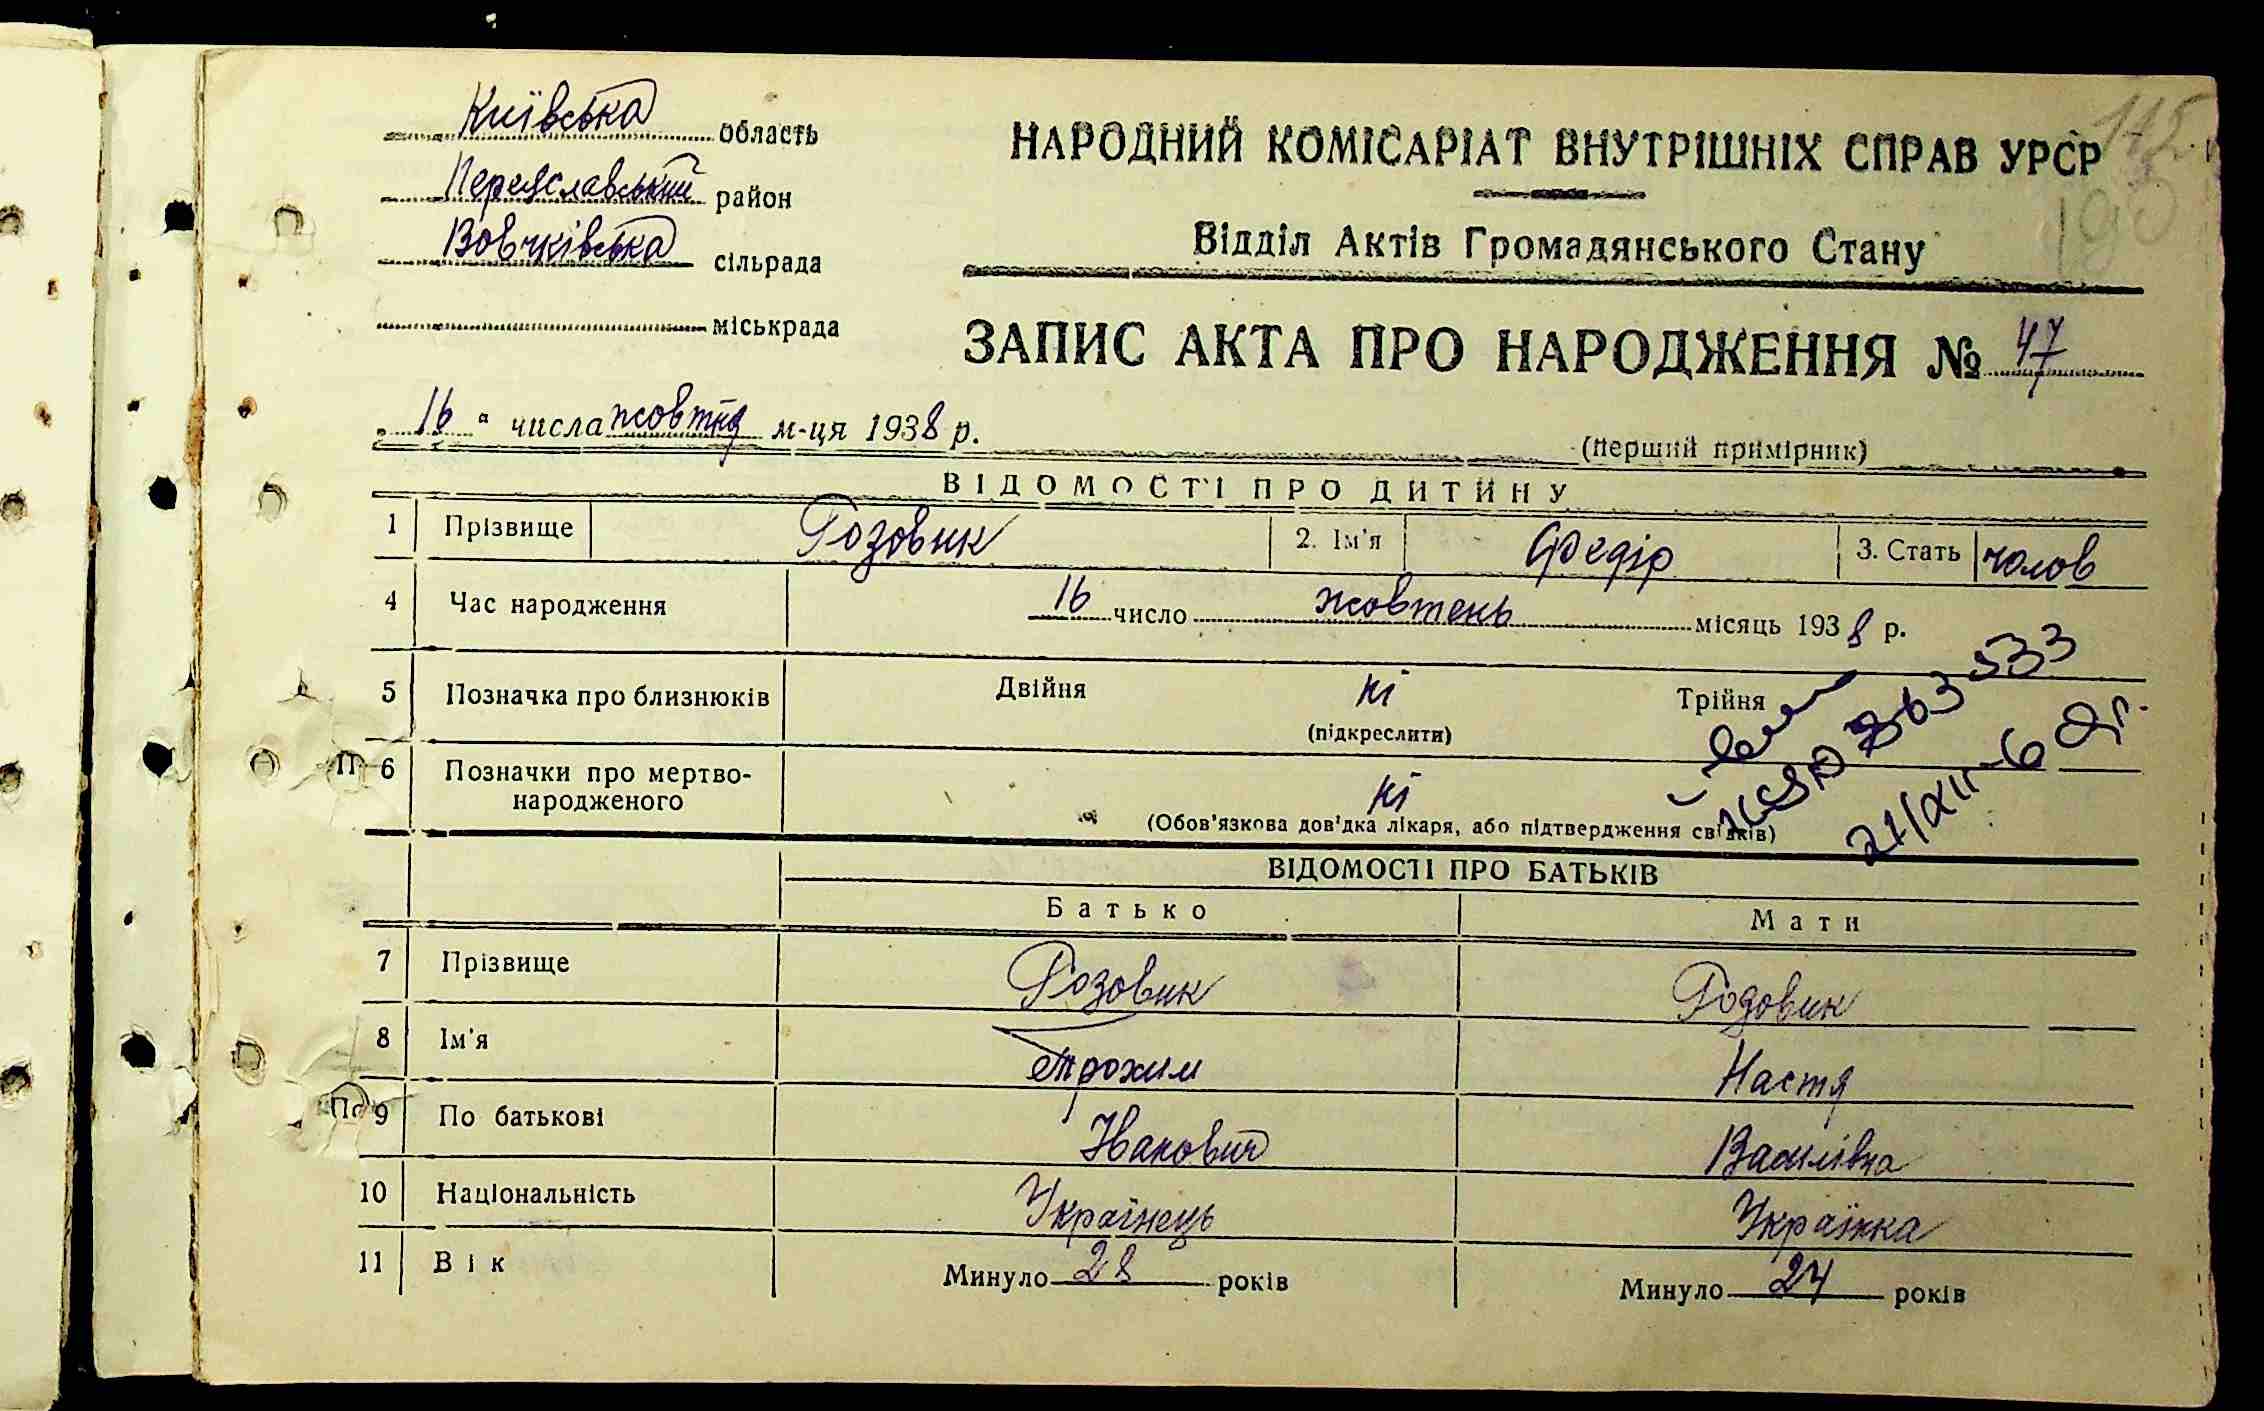 Київська область
Переяславський район
Вовчківська сільрада
міськрада
НАРОДНИЙ КОМІСАРІАТ ВНУТРІШНІХ СПРАВ УРСР
145
Відділ Актів Громадянського Стану
ЗАПИС АКТА ПРО НАРОДЖЕННЯ № 47
„16" числа жовтня м-ця 1938 р.
(перший примірник)
ВІДОМОСТІ ПРО ДИТИНУ
1 Прізвище Розовик 2. Ім'я Федір 3. Стать чолов
4 Час народження 16 число жовтень місяць 1938 р.
5 Позначка про близнюків Двійня ні Трійня
(підкреслити)
6 Позначки про мертво-
народженого ні
(Обов'язкова довідка лікаря, або підтвердження свідків)
363533
21/XII-62р.
ВІДОМОСТІ ПРО БАТЬКІВ
Батько Мати
7 Прізвище Розовик Розовик
8 Ім'я Трохим Настя
9 По батькові Іванович Василівна
10 Національність Українець Українка
11 Вік Минуло 28 років Минуло 24 років